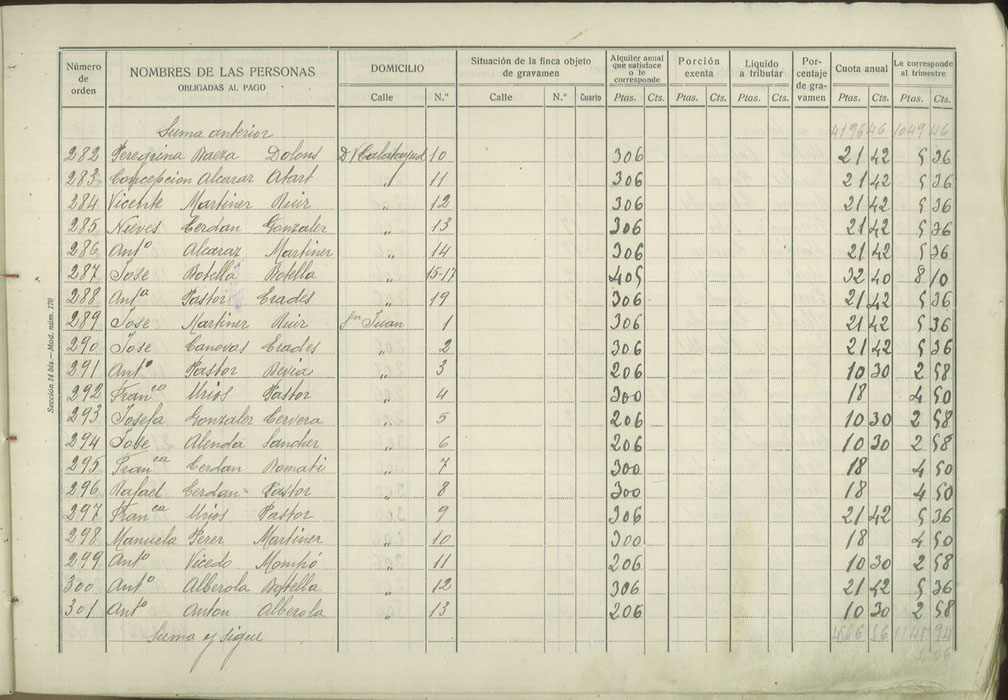 Número de orden | NOMBRES DE LAS PERSONAS OBLIGADAS AL PAGO | DOMICILIO | Situación de la finca objeto de gravamen | Alquiler anual que satisface o le corresponde | Porción exenta | Líquido a tributar | Por-centaje de gra-vamen | Cuota anual | Le corresponde al trimestre
Calle | N.º | Calle | N.º | Cuarto | Ptas. | Cts. | Ptas. | Cts. | Ptas. | Cts. | Ptas. | Cts. | Ptas. | Cts.
Suma anterior 4196 46 1049 46
282 Peregrina Baeza Dolons D V Calatayud 10 306 21 42 5 36
283 Concepcion Alcaraz Atart " 11 306 21 42 5 36
284 Vicente Martinez Ruiz " 12 306 21 42 5 36
285 Nieves Cerdan Gonzalez " 13 306 21 42 5 36
286 Antº Alcaraz Martinez " 14 306 21 42 5 36
287 Jose Botella Botella " 15-17 405 32 40 8 10
288 Antª Pastor Erades " 19 306 21 42 5 36
289 Jose Martinez Ruiz Sn Juan 1 306 21 42 5 36
290 Jose Canovas Erades " 2 306 21 42 5 36
291 Antº Pastor Devia " 3 206 10 30 2 58
292 Franco Urios Pastor " 4 300 18 4 50
293 Josefa Gonzalez Cervera " 5 206 10 30 2 58
294 Jose Alenda Sanchez " 6 206 10 30 2 58
295 Franca Cerdan Romati " 7 300 18 4 50
296 Rafael Cerdan Pastor " 8 300 18 4 50
297 Franca Urios Pastor " 9 306 21 42 5 36
298 Manuela Perez Martinez " 10 300 18 4 50
299 Antº Vicedo Mompó " 11 206 10 30 2 58
300 Antº Alberola Botella " 12 306 21 42 5 36
301 Antº Anton Alberola " 13 206 10 30 2 58
Suma y sigue
Sección 14 bis.—Mod. núm. 170